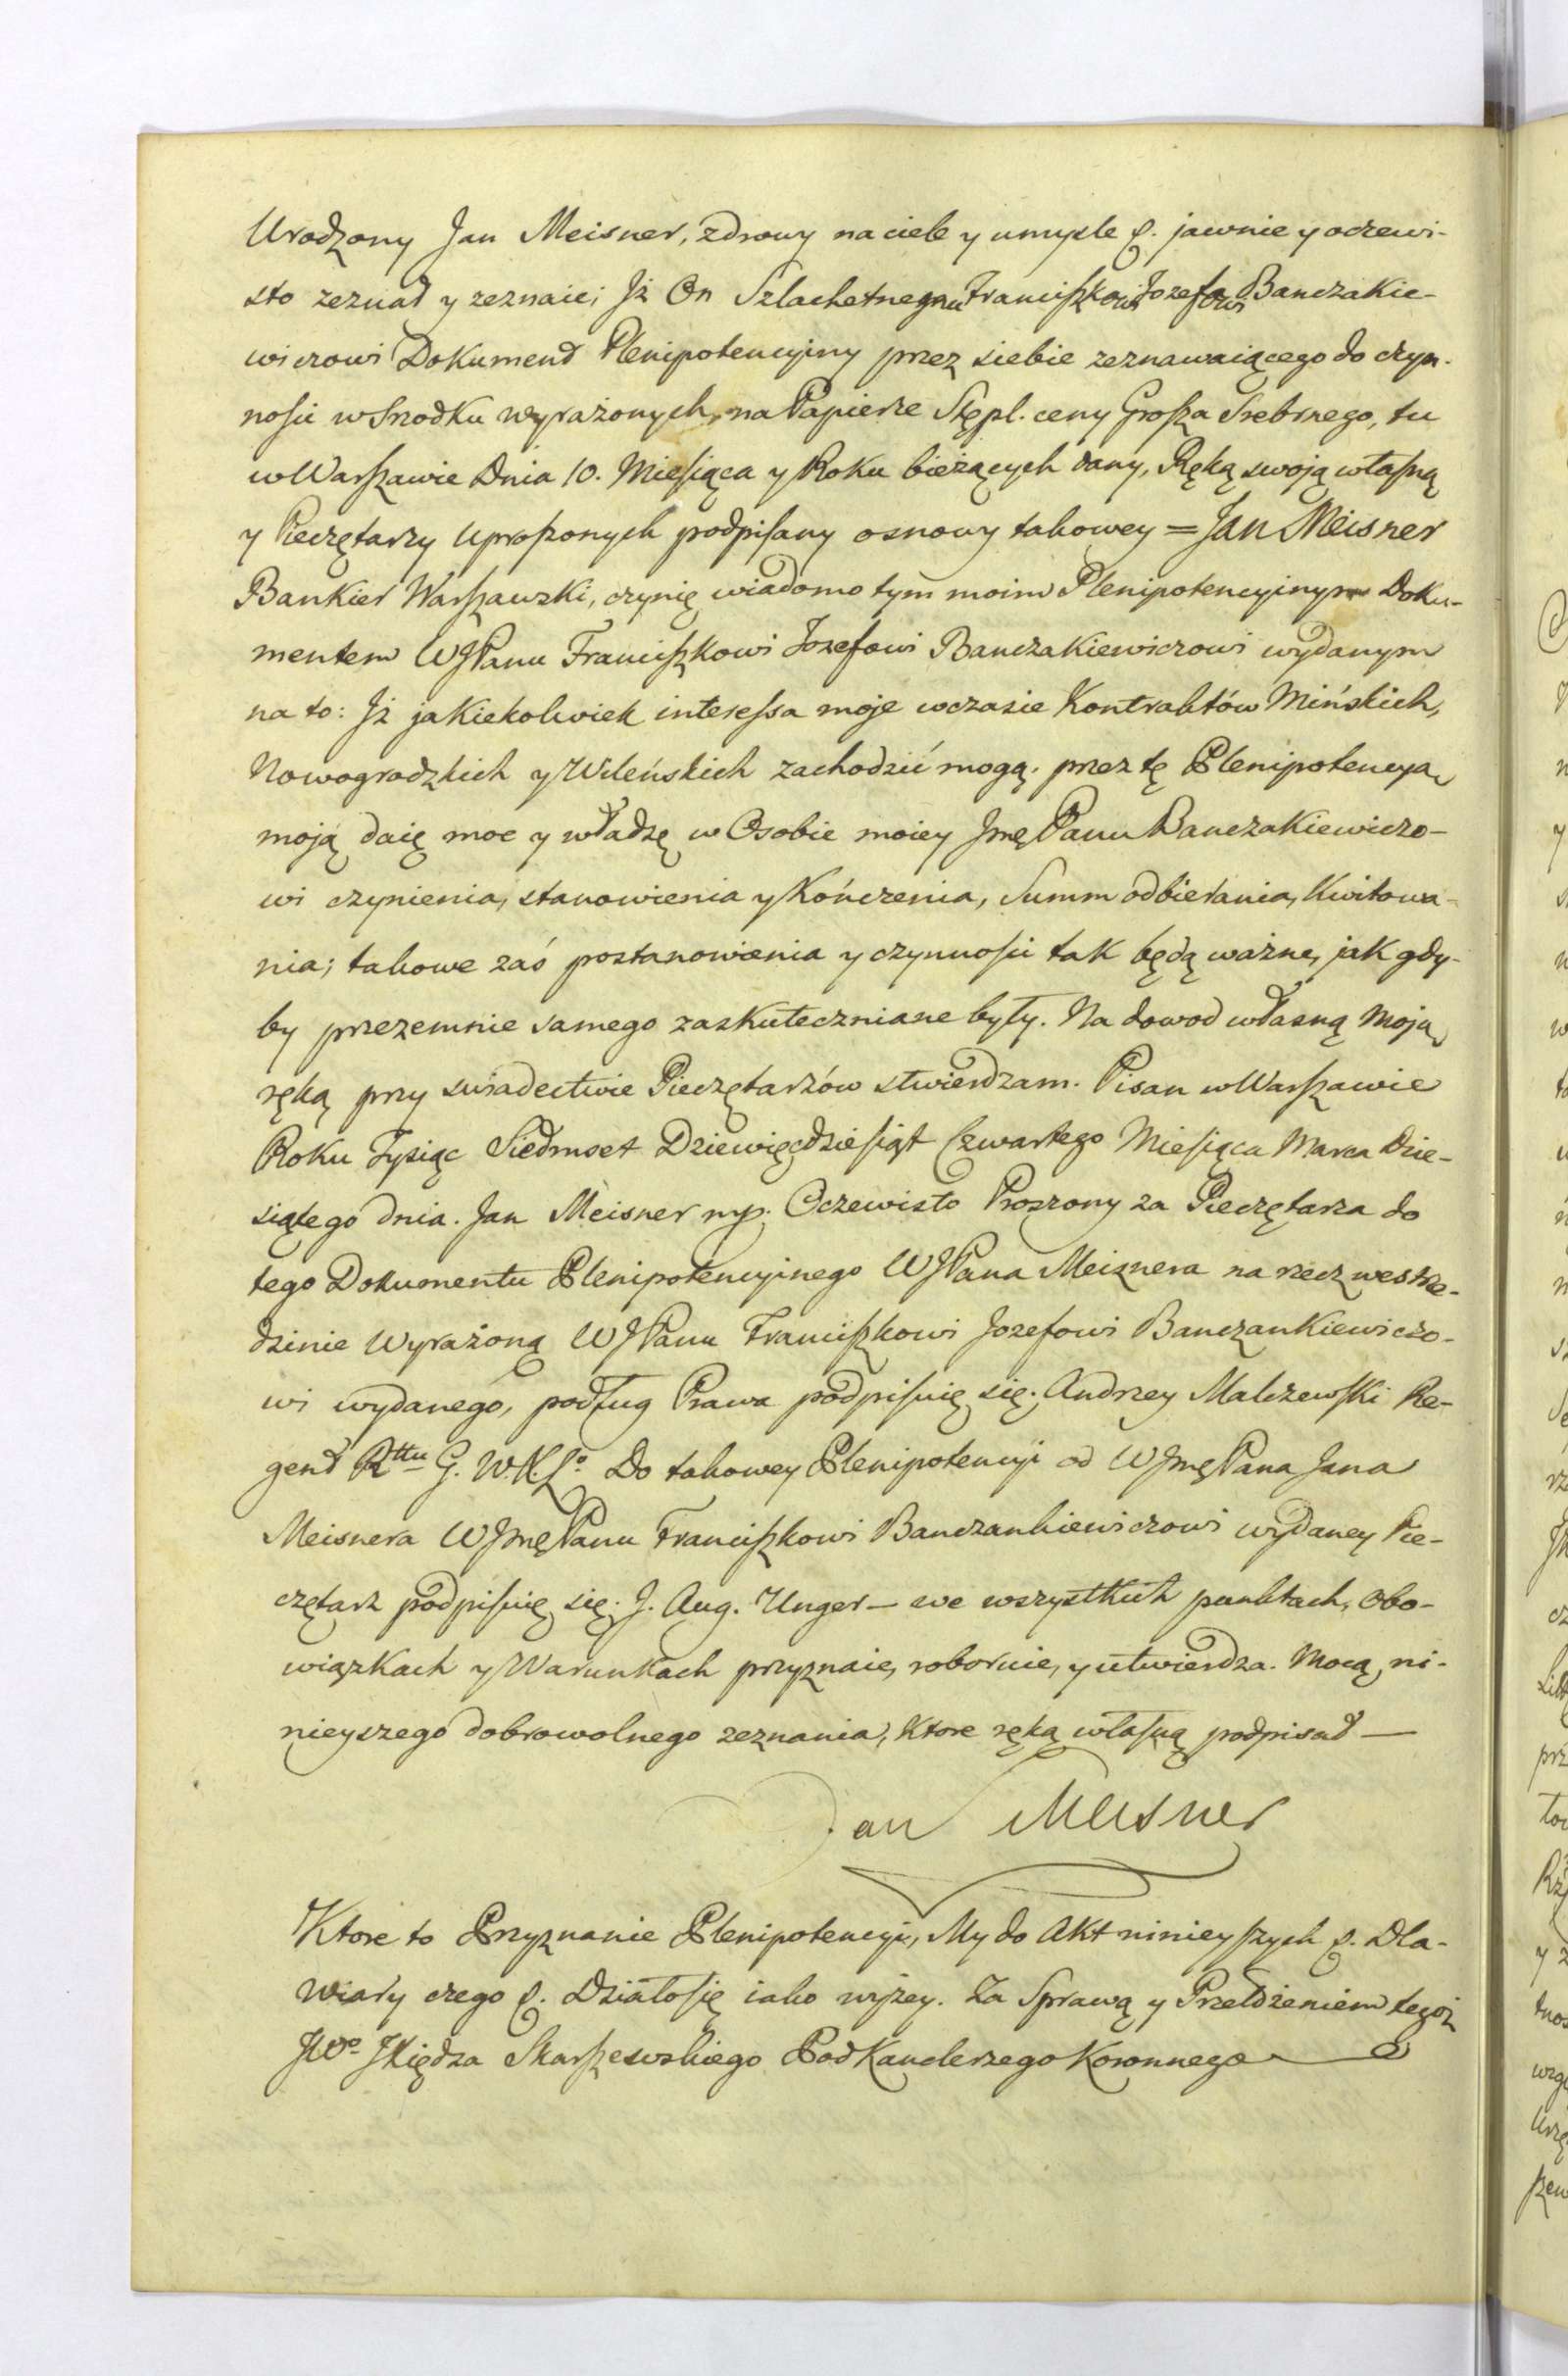 Urodzony Jan Meisner, zdrowy na ciele y umysle &. jawnie y oczewi-
sto zeznał y zeznaie; Jż On Szlachetnemu Franciszkowi Jozefowi Banczakie-
wiczowi Dokument Plenipotencyiny przez siebie zeznawaiącego do czyn-
nosci w Srzodku wyrażonych, na Papierze Stępl. ceny Grosza Srebrnego, tu
w Warszawie Dnia 10. Miesiąca y Roku bieżących dany, Ręką swoją własną
y Pieczętarzy uproszonych podpisany osnowy takowey = Jan Meisner
Bankier Warszawski, czynię wiadomo tym moim Plenipotencyinym Doku-
mentem WJPanu Franciszkowi Jozefowi Banczakiewiczowi wydanym
na to: Jż jakiekolwiek interessa moje wczasie Kontraktów Mińskich,
Nowogrodzkich y Wileńskich zachodzić mogą. przez tę Plenipotencyą
moją daię moc y władzę w Osobie moiey Jmę Panu Banczakiewiczo-
wi czynienia, stanowienia y Kończenia, Summ odbierania, Kwitowa-
nia; takowe zaś postanowienia y czynnosci tak będą ważne, jak gdy-
by przezemnie samego zaskuteczniane były. Na dowod własną moją
ręką przy swiadectwie Pieczętarzów stwierdzam. Pisan w Warszawie
Roku Tysiąc Siedmset Dziewięcdziesiąt Czwartego Miesiąca Marca Dzie-
siątego dnia. Jan Meisner mp. Oczewisto Proszony za Pieczętarza do
tego Dokumentu Plenipotencyinego WJPana Meiznera na rzecz westrze-
dzinie wyrażoną WJPanu Franciszkowi Jozefowi Banczankiewiczo-
wi wydanego, podług Prawa podpisuię się. Andrzey Malczewski Re-
gent Rttu G. W. K. Lo. Do takowey Plenipotencyi od WJmę Pana Jana
Meisnera WJmę Panu Franciszkowi Banczankiewiczowi wydaney Pie-
czętarz podpisuię się. J. Aug. Unger — we wszystkich punktach, obo-
wiązkach y Warunkach przyznaie, roboruie, y utwierdza. Mocą, ni-
nieyszego dobrowolnego zeznania, Ktore ręką własną podpisał —
Jan Meisner
Ktore to Przyznanie Plenipotencyi, My do Akt ninieyszych &. Dla-
Wiary czego &. Działo się iako wyżey. Za Sprawą y Przełożeniem tegoż
JWo JXiędza Skarszewskiego PodKanclerzego Koronnego